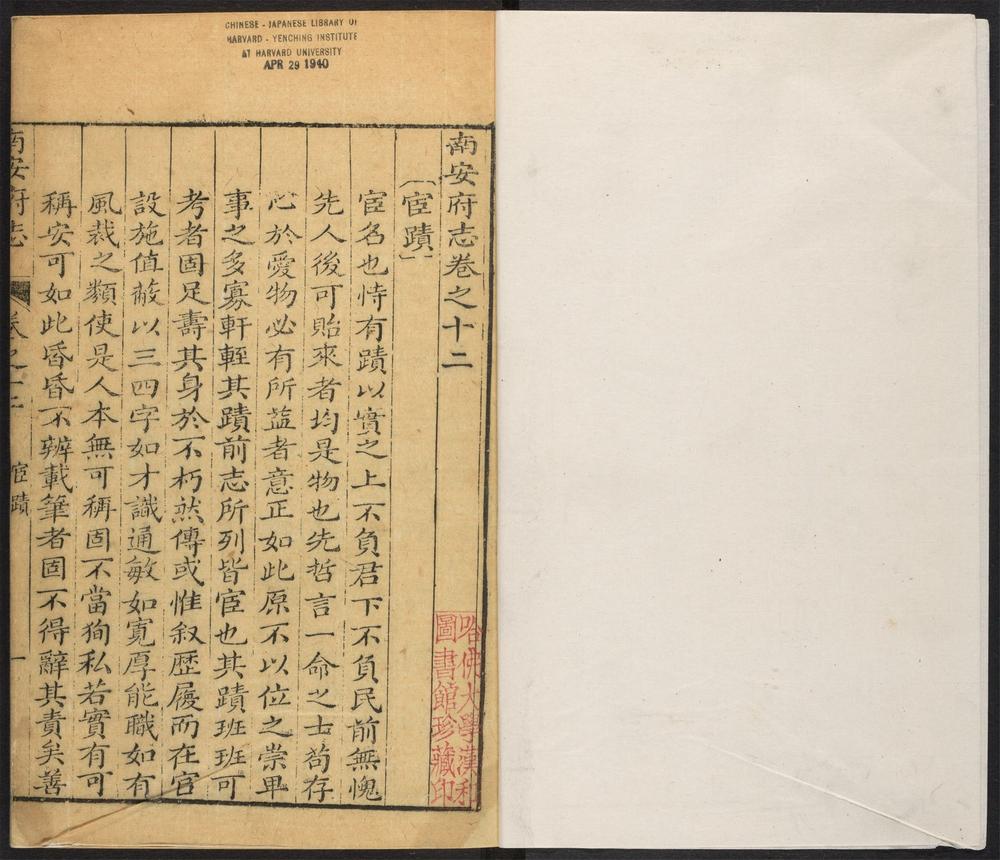 CHINESE - JAPANESE LIBRARY OF
HARVARD - YENCHING INSTITUTE
AT HARVARD UNIVERSITY
APR 29 1940
南安府志卷之十二
宦蹟
宦名也恃有蹟以實之上不負君下不負民前無愧
先人後可貽來者均是物也先哲言一命之士苟存
心於愛物必有所益者意正如此原不以位之崇卑
事之多寡軒輊其蹟前志所列皆宦也其蹟班班可
考者固足壽其身於不朽然傳或惟叙歷履而在官
設施值蔽以三四字如才識通敏如寬厚能職如有
風裁之類使是人本無可稱固不當狥私若實有可
稱安可如此昏昏不辨載筆者固不得辭其責矣善
南安府志
卷之十二
宦蹟
一
哈佛大學漢和
圖書館珍藏印